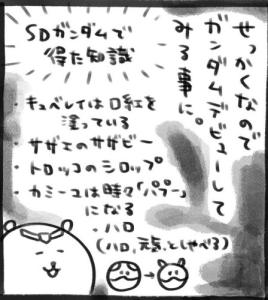 せっかくなので
ガンダムデビューして
みる事に。
SDガンダムで
得た知識
・キュベレイは口紅を
塗っている
・サザエのサザビー
・トロッコのシロップ
・カミーユは時々「パプー」
になる
・ハロ
(ハロ、元気、としゃべる)